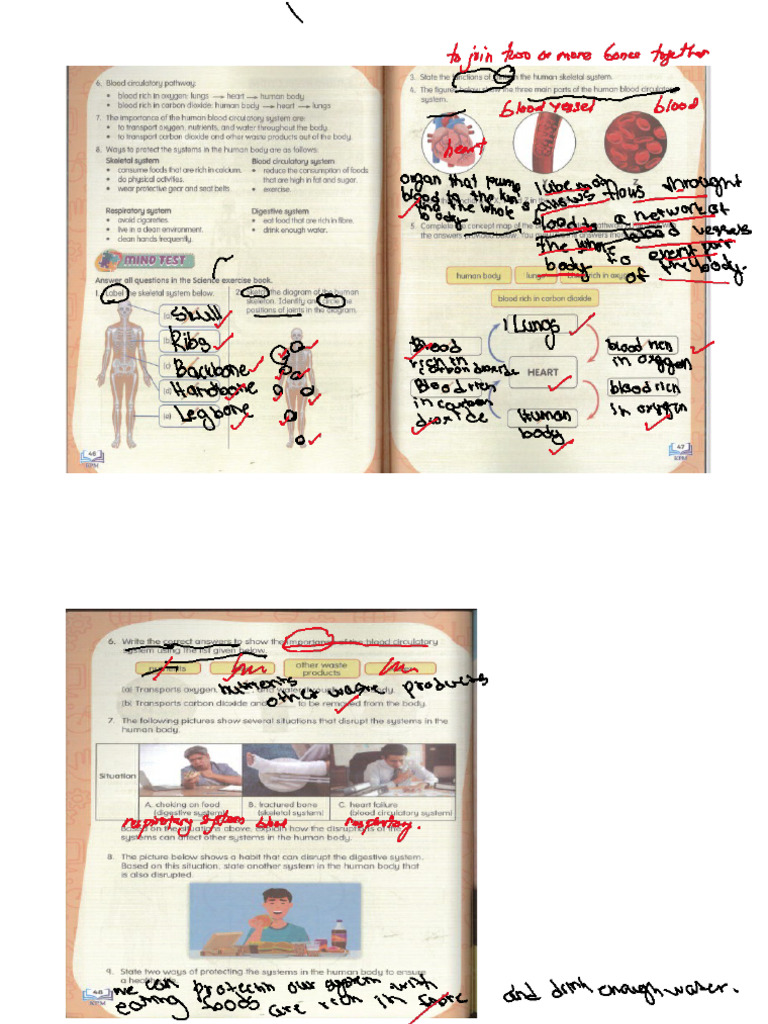 to join two or more bones together
6. Blood circulatory pathway:
• blood rich in oxygen: lungs → heart → human body
• blood rich in carbon dioxide: human body → heart → lungs
7. The importance of the human blood circulatory system are:
• to transport oxygen, nutrients, and water throughout the body.
• to transport carbon dioxide and other waste products out of the body.
8. Ways to protect the systems in the human body are as follows:
Skeletal system
• consume foods that are rich in calcium.
• do physical activities.
• wear protective gear and seat belts
Blood circulatory system
• reduce the consumption of foods
that are high in fat and sugar.
• exercise.
Respiratory system
• avoid cigarettes.
• live in a clean environment.
• clean hands frequently.
Digestive system
• eat food that are rich in fibre.
• drink enough water.
MIND TEST
Answer all questions in the Science exercise book.
1. Label the skeletal system below.
(a) Skull
(b) Ribs
(c) Backbone
(d) Handbone
(e) Legbone
2. Sketch the diagram of the human
skeleton. Identify and circle the
positions of joints in the diagram.
46
KPM
3. State the functions of in the human skeletal system.
4. The figures below show the three main parts of the human blood circulatory
system.
blood vessel
blood
heart
organ that pump
blood to the
and the whole
body.
tube
allows
blood to
the whole
body
flows throught
a network of
blood vessels
to every part
of the body.
5. Complete the concept map of the
the answers provided below. You
human body
lungs
blood rich in oxygen
blood rich in carbon dioxide
Lungs
Blood
rich in
carbon dioxide
blood rich
in oxygen
HEART
Blood rich
in carbon
dioxide
blood rich
in oxygen
Human
body
47
KPM
6. Write the correct answers to show the importance of the blood circulatory
system using the list given below.
nutrients
other waste
products
(a) Transports oxygen, nutrients and water throughout the body.
(b) Transports carbon dioxide and other waste products to be removed from the body.
7. The following pictures show several situations that disrupt the systems in the
human body.
Situation
A. choking on food
(digestive system)
B. fractured bone
(skeletal system)
C. heart failure
(blood circulatory system)
respiratory system
blood
respiratory.
Based on the situations above, explain how the disruptions of the
systems can affect other systems in the human body.
8. The picture below shows a habit that can disrupt the digestive system.
Based on this situation, state another system in the human body that
is also disrupted.
9. State two ways of protecting the systems in the human body to ensure
a healthy
we can protectin our system with
eating foods are rich in
and drink enough water.
48
KPM